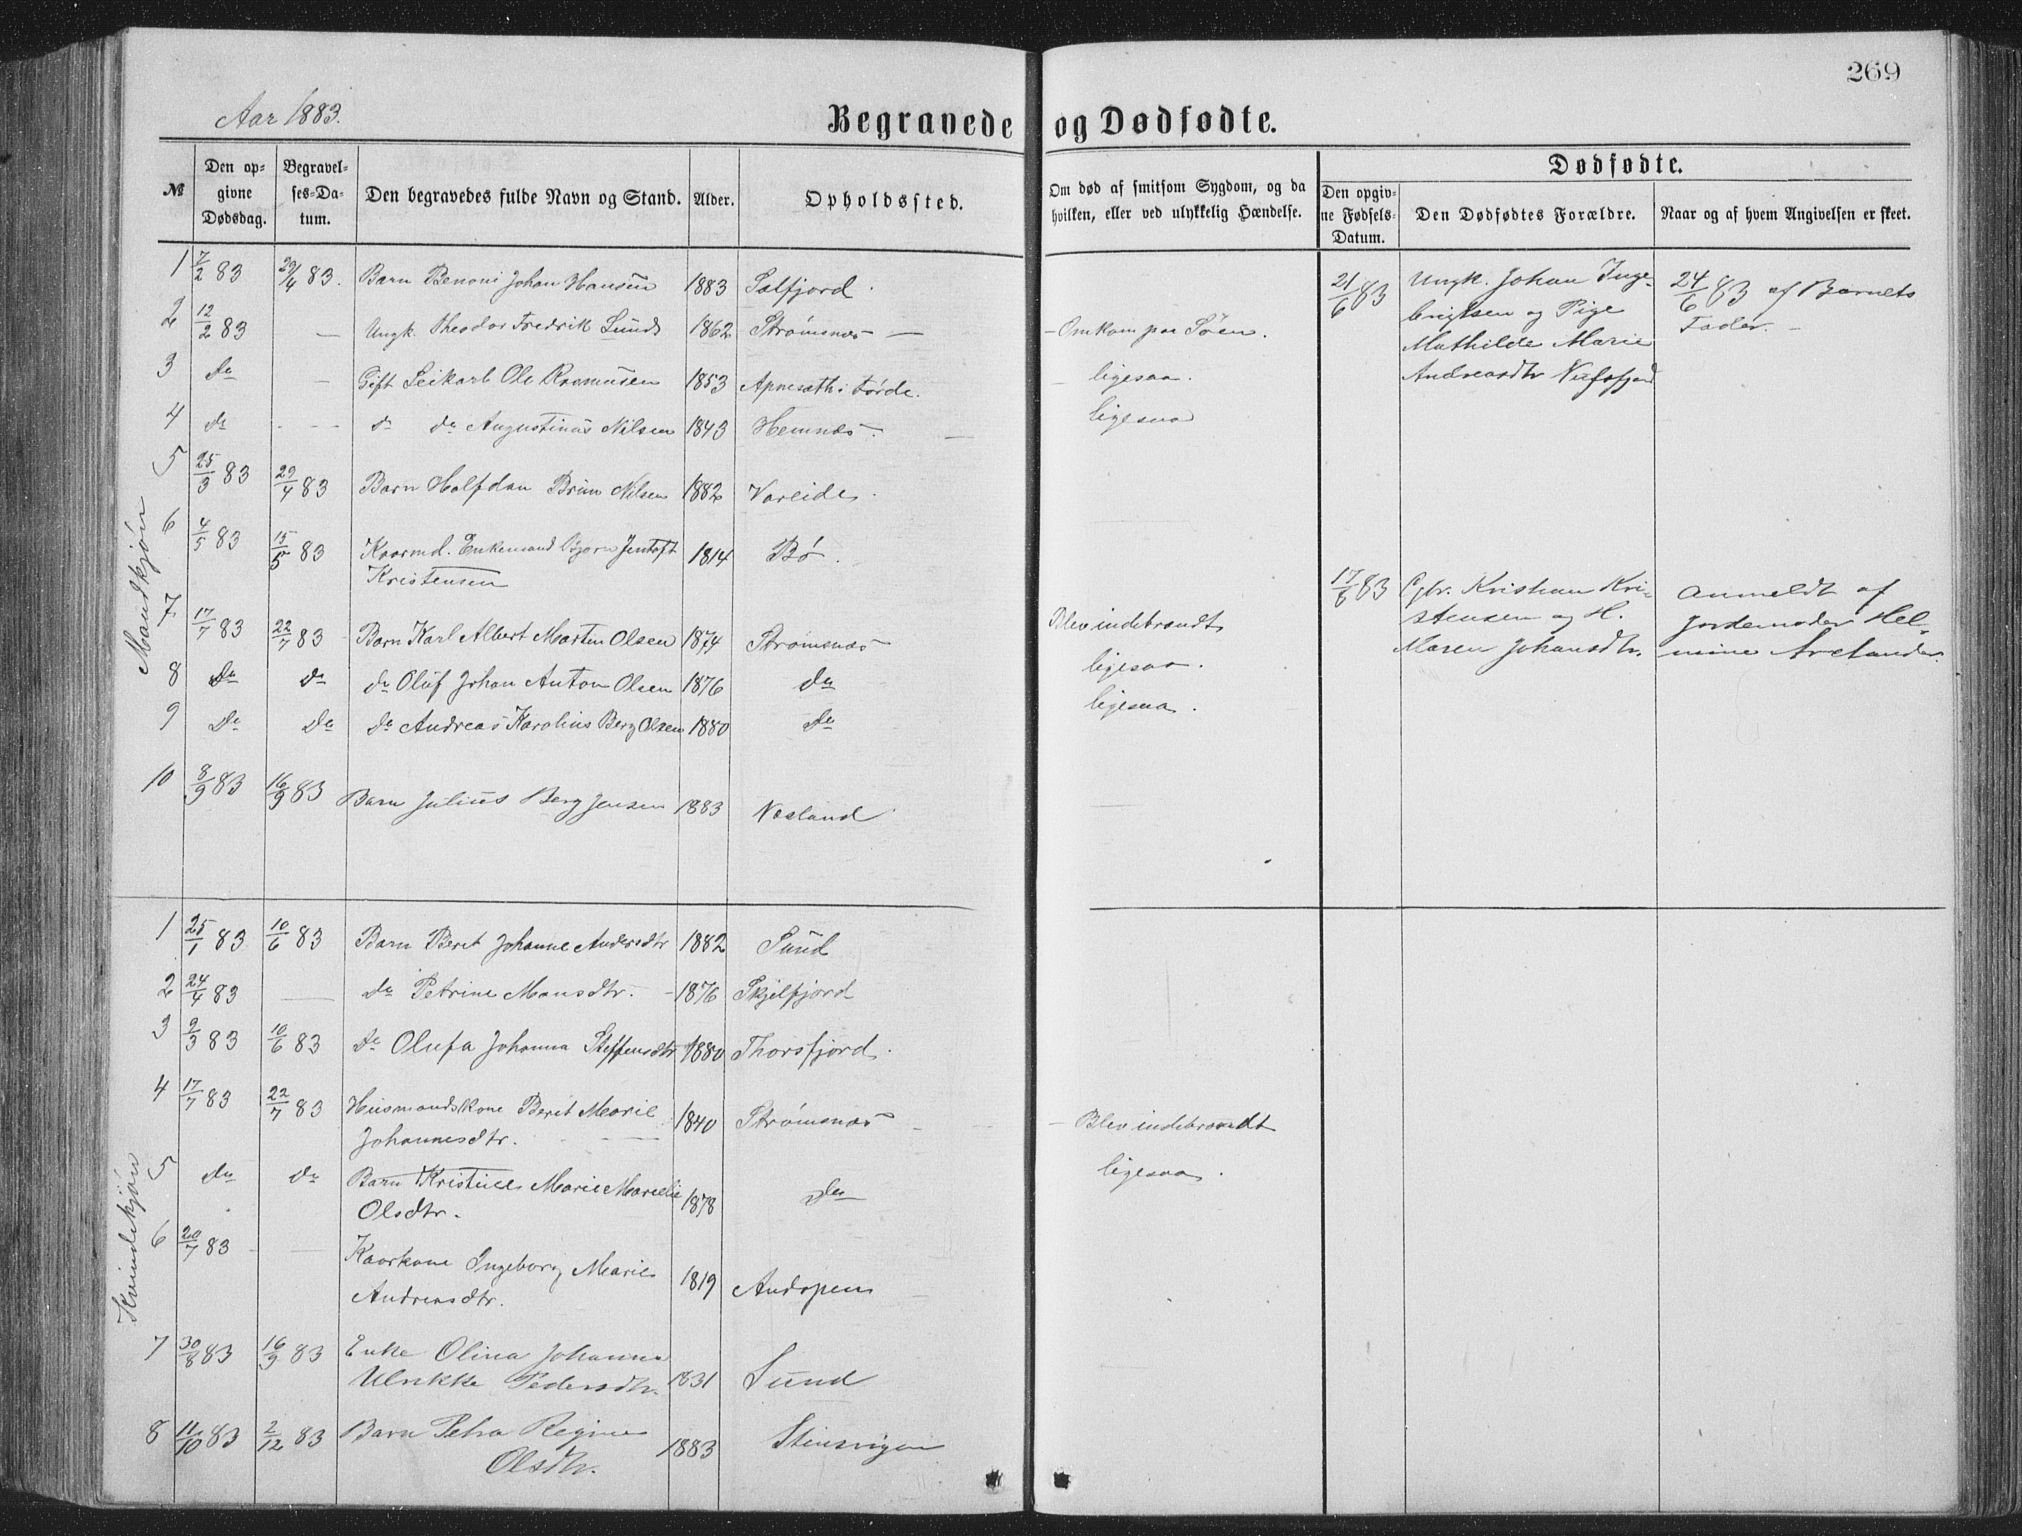 269
Aar 1883.
Begravede og Dødfødte.
№
Den op-
givne
Dødsdag.
Begravel-
ses-Da-
tum.
Den begravedes fulde Navn og Stand.
Alder.
Opholdssted.
Om død af smitsom Sygdom, og da
hvilken, eller ved ulykkelig Hændelse.
Dødfødte.
Den opgiv-
ne Fødsels-
Datum.
Den Dødfødtes Forældre.
Naar og af hvem Angivelsen er skeet.
Mandkjøn
1 7/2 83 29/4 83. Barn Benoni Johan Hansen 1883 Selfjord.
2 12/2 83 — Ungk. Theodor Fredrik Lund 1862 Strømsnæs — Omkom paa Søen.
3 do — Gift Leikarl Ole Rasmusen 1853 i Førde. ligesaa.
4 do - - - do do Augustinus Nilsen 1843 Hemnæs. ligesaa
5 25/3 83 29/4 83 Barn Halfdan Brun Nilsen 1882 Vareide.
6 4/5 83 15/5 83 Kaarmd. Enkemand Bjørn Jentoft
Kristensen 1814 Bø.
7 17/7 83 22/7 83 Barn Karl Albert Martin Olsen 1874 Strømsnæs Blev indebrændt
8 do do do Oluf Johan Anton Olsen 1876 do ligesaa.
9 do do do Andreas Karolius Berg Olsen 1880 do ligesaa.
10 8/9 83 16/9 83 Barn Julius Berg Jensen 1883 Nesland
21/6 83 Ungk. Johan Inge-
brigtsen og Pige
Mathilde Marie
Andreasdtr Nufsfjord
24/6 83 af Barnets
Fader.
17/6 83 Gbr. Kristian Kri-
stensen og H.
Maren Johansdtr.
anmeldt af
Jordemoder Hel-
mine Arctander.
Kvindekjøn
1 25/1 83 10/6 83 Barn Berit Johanne Andersdtr 1882 Sund
2 24/4 83 — do Petrine Monsdtr. 1876 Skjelfjord
3 9/3 83 10/6 83 do Olufa Johanna Steffensdtr 1880 Thorsfjord.
4 17/7 83 22/7 83 Husmandskone Berit Marie
Johannesdtr. 1840 Strømsnæs — Blev indebrændt
5 do do Barn Kristine Marie
Olsdtr. 1878 do ligesaa.
6 20/7 83 — Kaarkone Ingeborg Marie
Andreasdtr. 1819 Andopen
7 30/8 83 16/9 83 Enke Olina Johanna
Ulrikke Pedersdtr. 1831 Sund
8 11/10 83 2/12 83 Barn Petra Regine
Olsdtr. 1883 Stensvigen